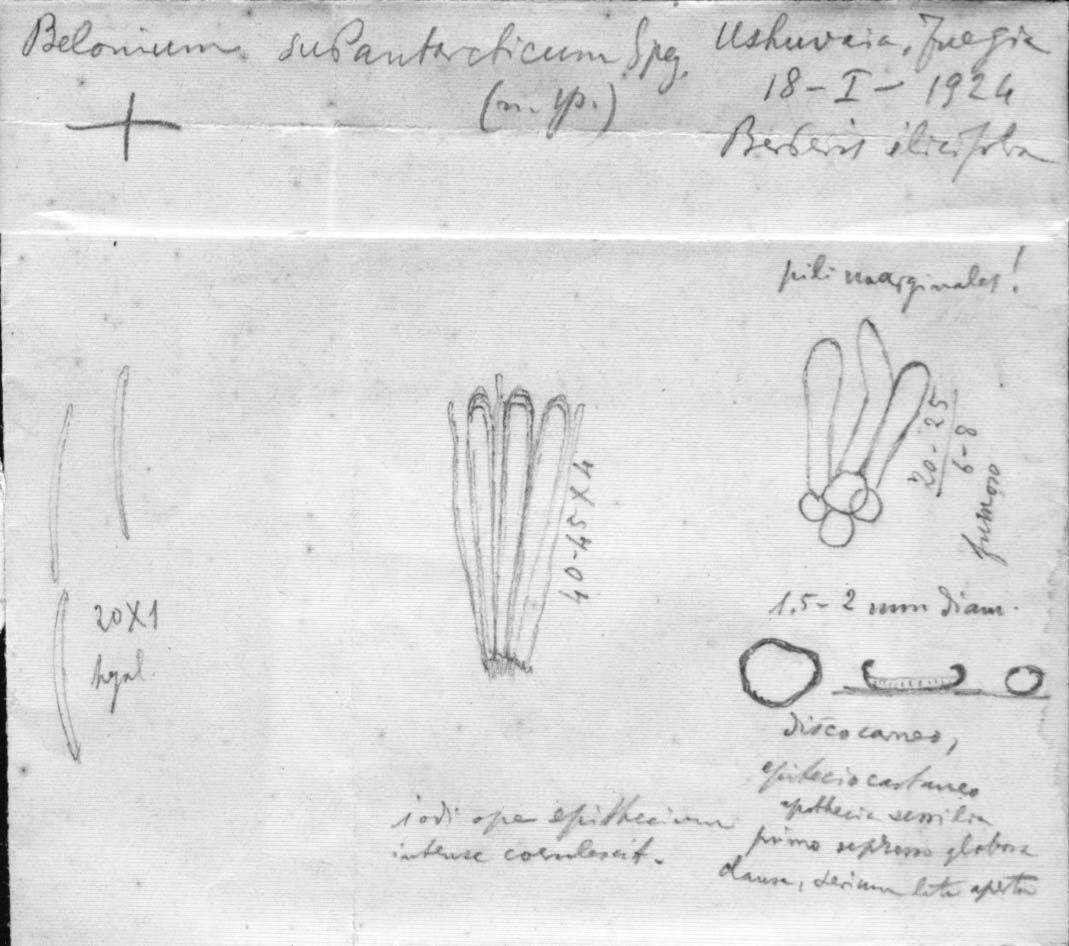 Belonium subantarcticum Speg.
(n. sp.)
Ushuvaia, Fuegia
18-I-1924
Berberis ilicifolia
pili marginales!
20-25
6-8
fumoso
40-45X4
20X1
hyal.
1,5-2 mm diam.
disco carneo,
epiteciocastaneo
apothecia sessilia
primo depresso globosa
clausa, serium late aperta
iodi ope epithecium
intense coerulescit.